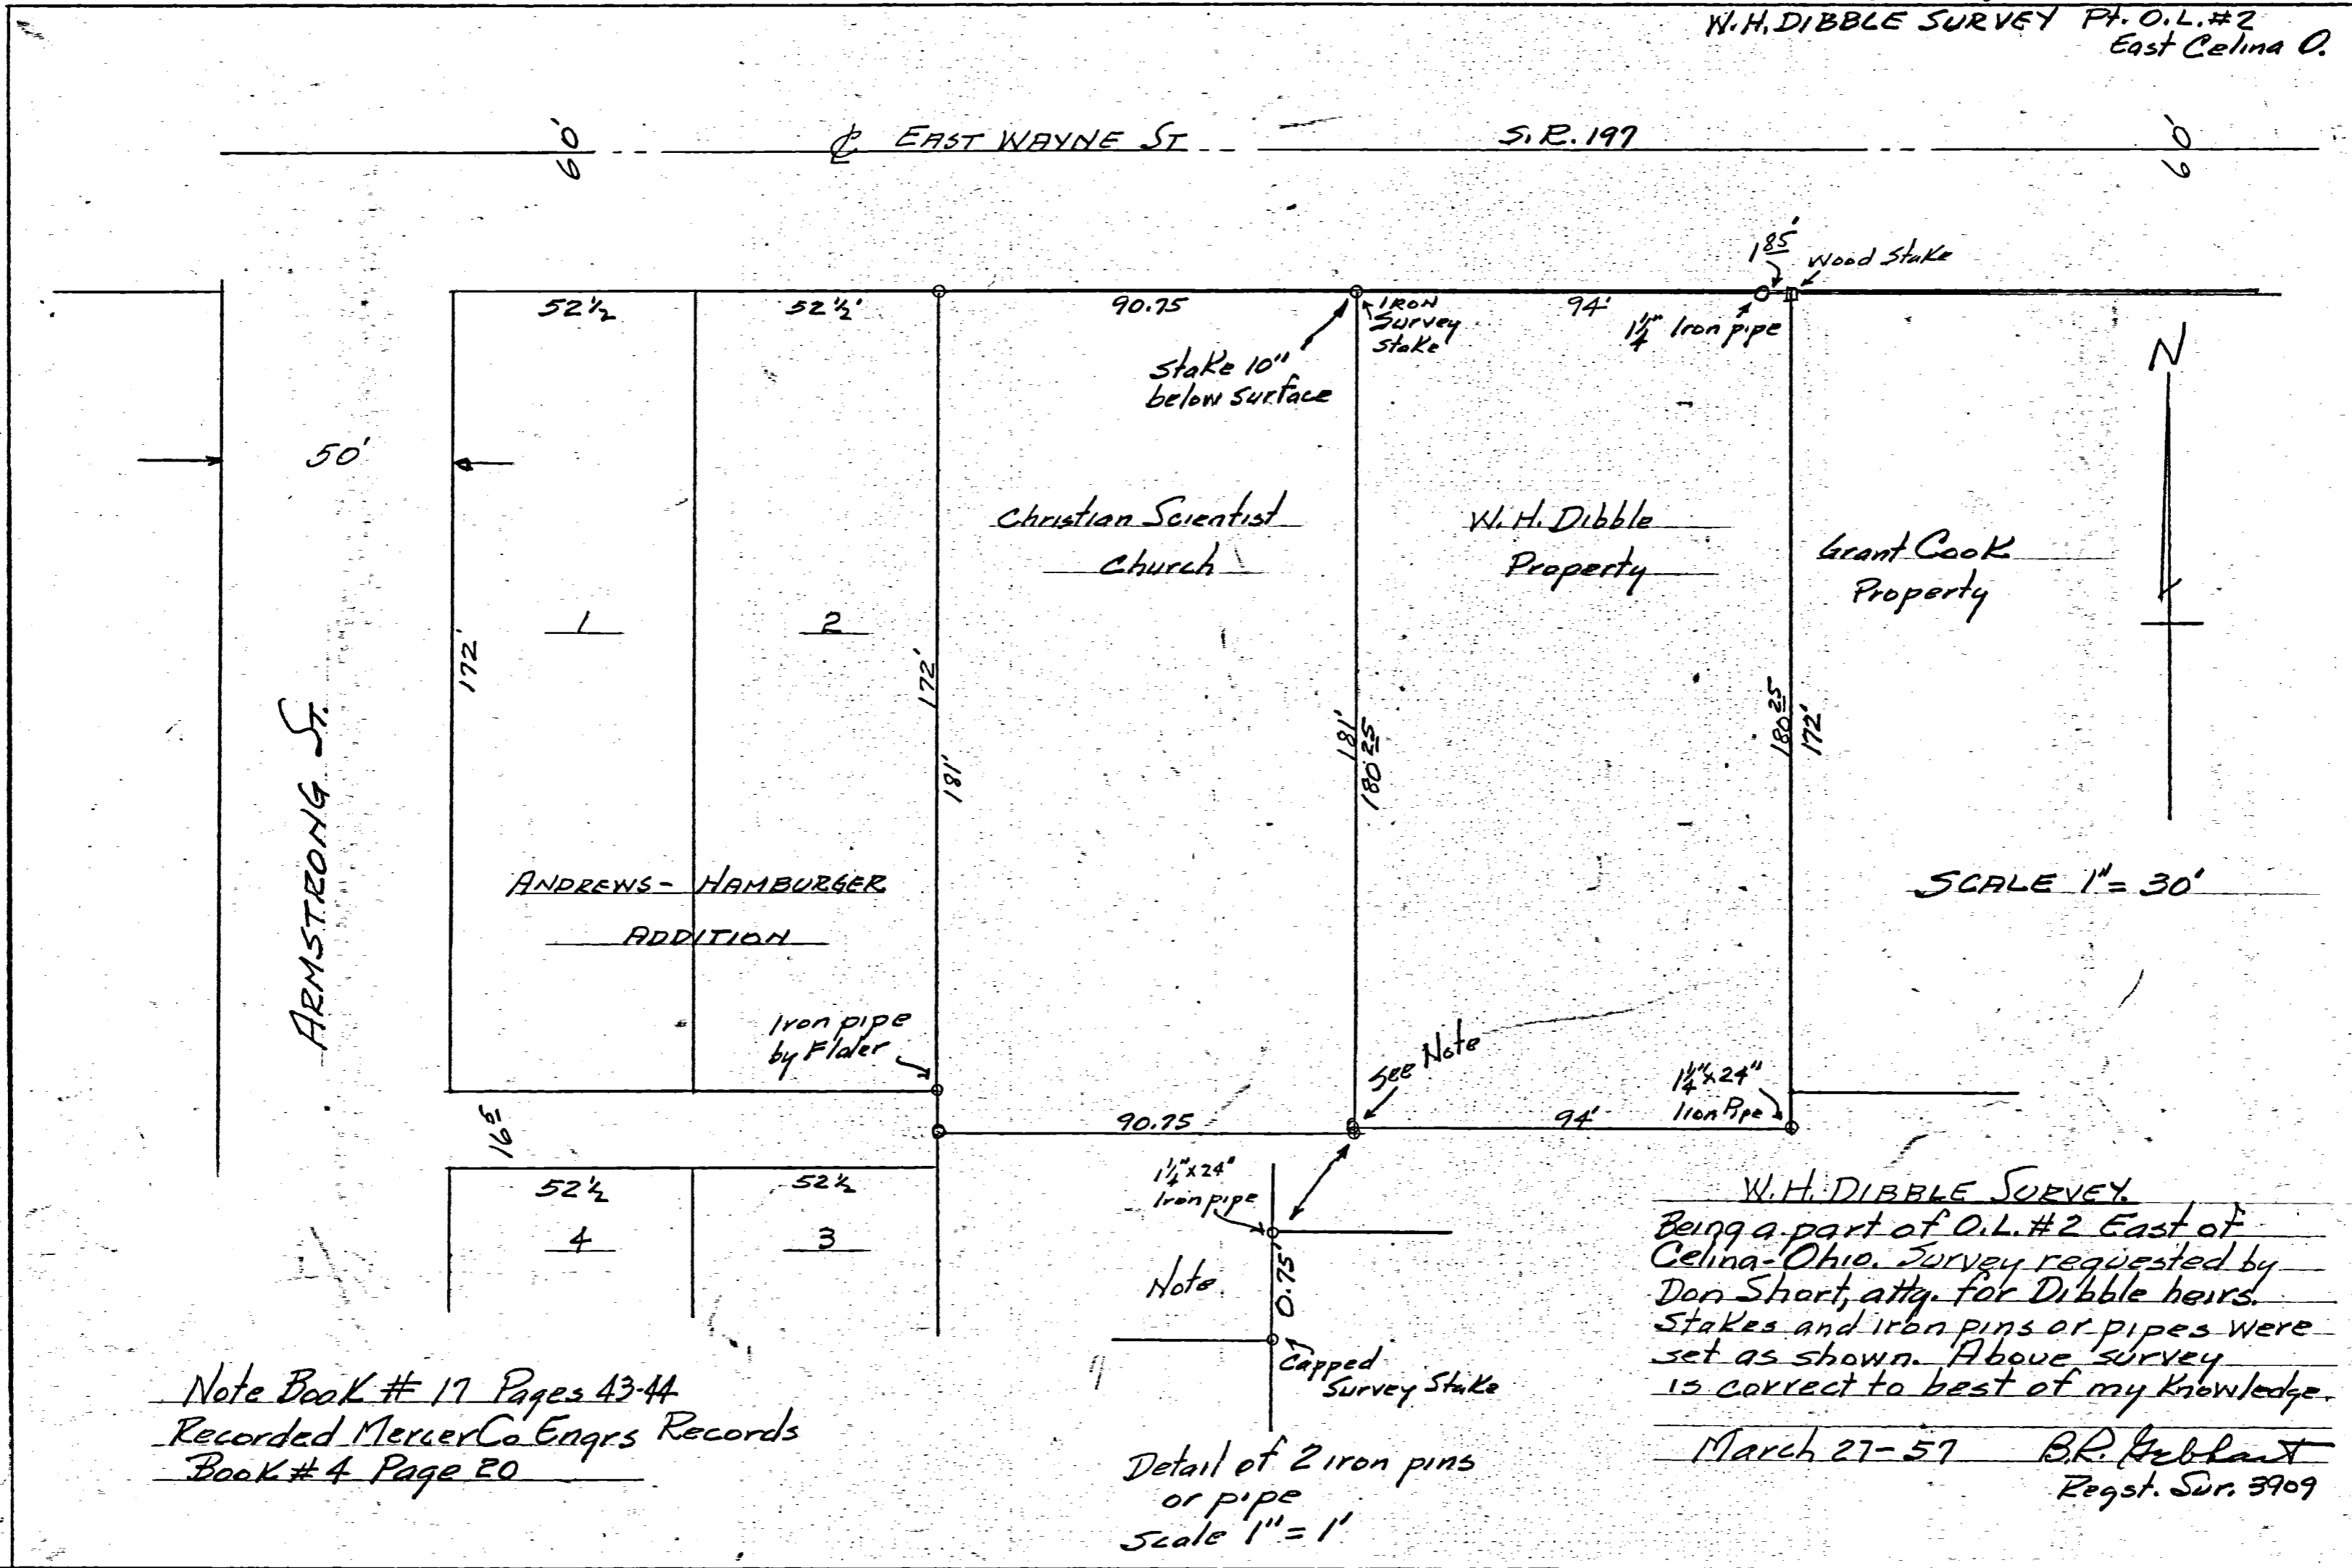 W.H. DIBBLE SURVEY Pt. O.L. #2
East Celina O.
60'
℄ EAST WAYNE ST
S.R. 197
60'
1 85'
Wood Stake
52½
52½'
90.75
IRON
Survey
Stake
94'
1¼" Iron pipe
Stake 10"
below surface
N
50'
Christian Scientist
Church
W.H. Dibble
Property
Grant Cook
Property
1
2
172'
172'
181'
181'
180 25
180 25
172'
ARMSTRONG ST.
ANDREWS - HAMBURGER
ADDITION
SCALE 1" = 30'
Iron pipe
by Flaler
See Note
1¼" x 24"
Iron Pipe
16 5'
90.75
94'
52½
52½
4
3
1¼" x 24"
Iron pipe
Note
0.75'
Capped
Survey Stake
Detail of 2 iron pins
or pipe
Scale 1" = 1'
W.H. DIBBLE SURVEY.
Being a part of O.L. #2 East of
Celina-Ohio. Survey requested by
Don Short, atty. for Dibble heirs.
Stakes and iron pins or pipes were
set as shown. Above survey
is correct to best of my knowledge.
March 27-57 B.R. Gebhart
Regst. Sur. 3909
Note Book # 17 Pages 43-44
Recorded Mercer Co Engrs Records
Book # 4 Page 20